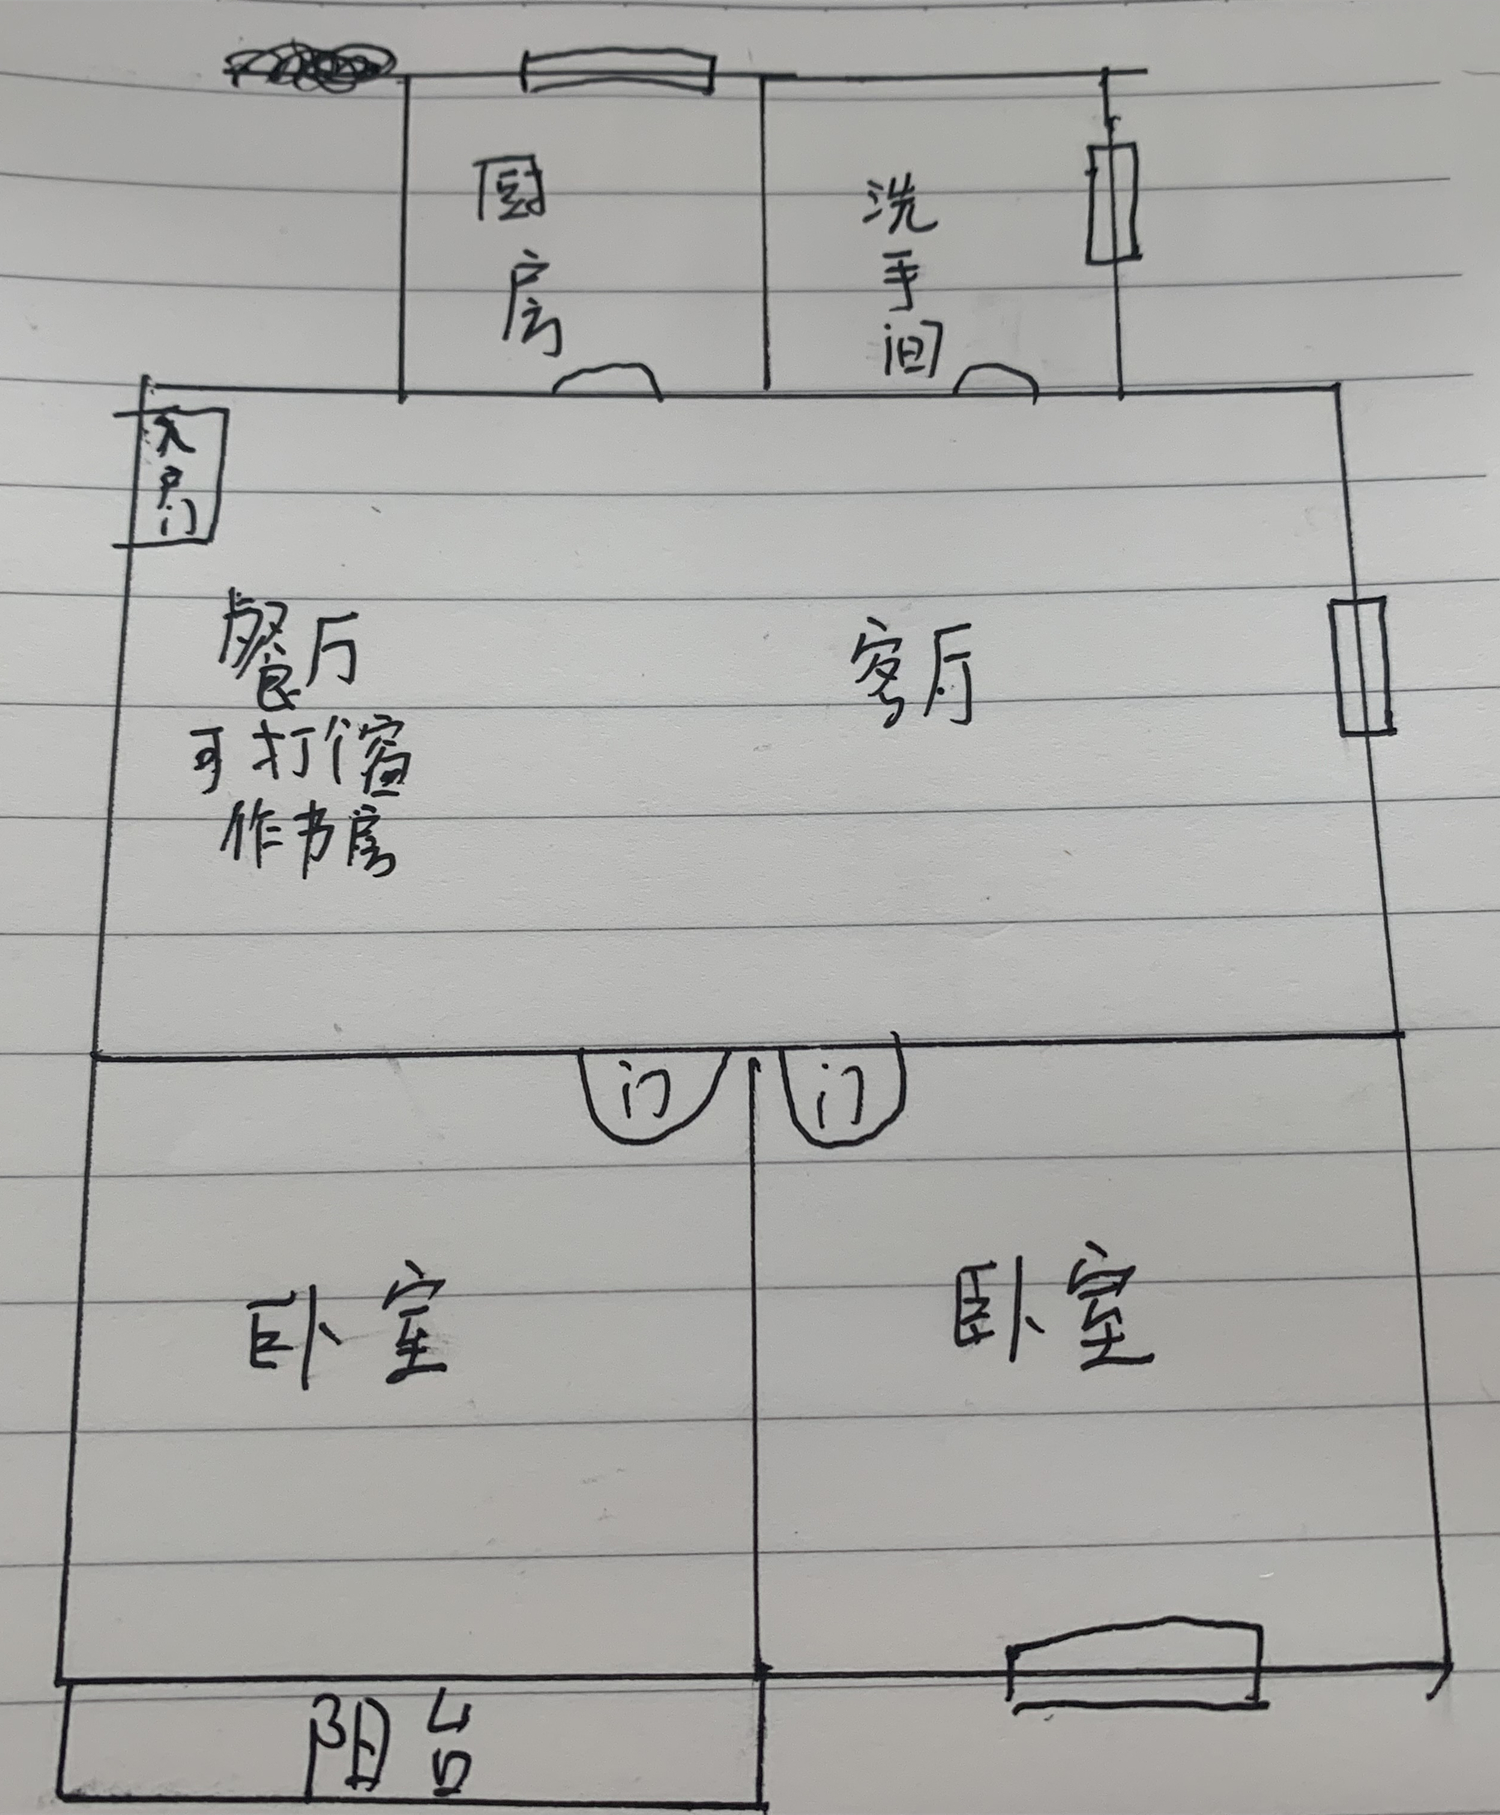 厨房
洗手间
入户门
餐厅
可打个窗
作书房
客厅
门
门
卧室
卧室
阳台